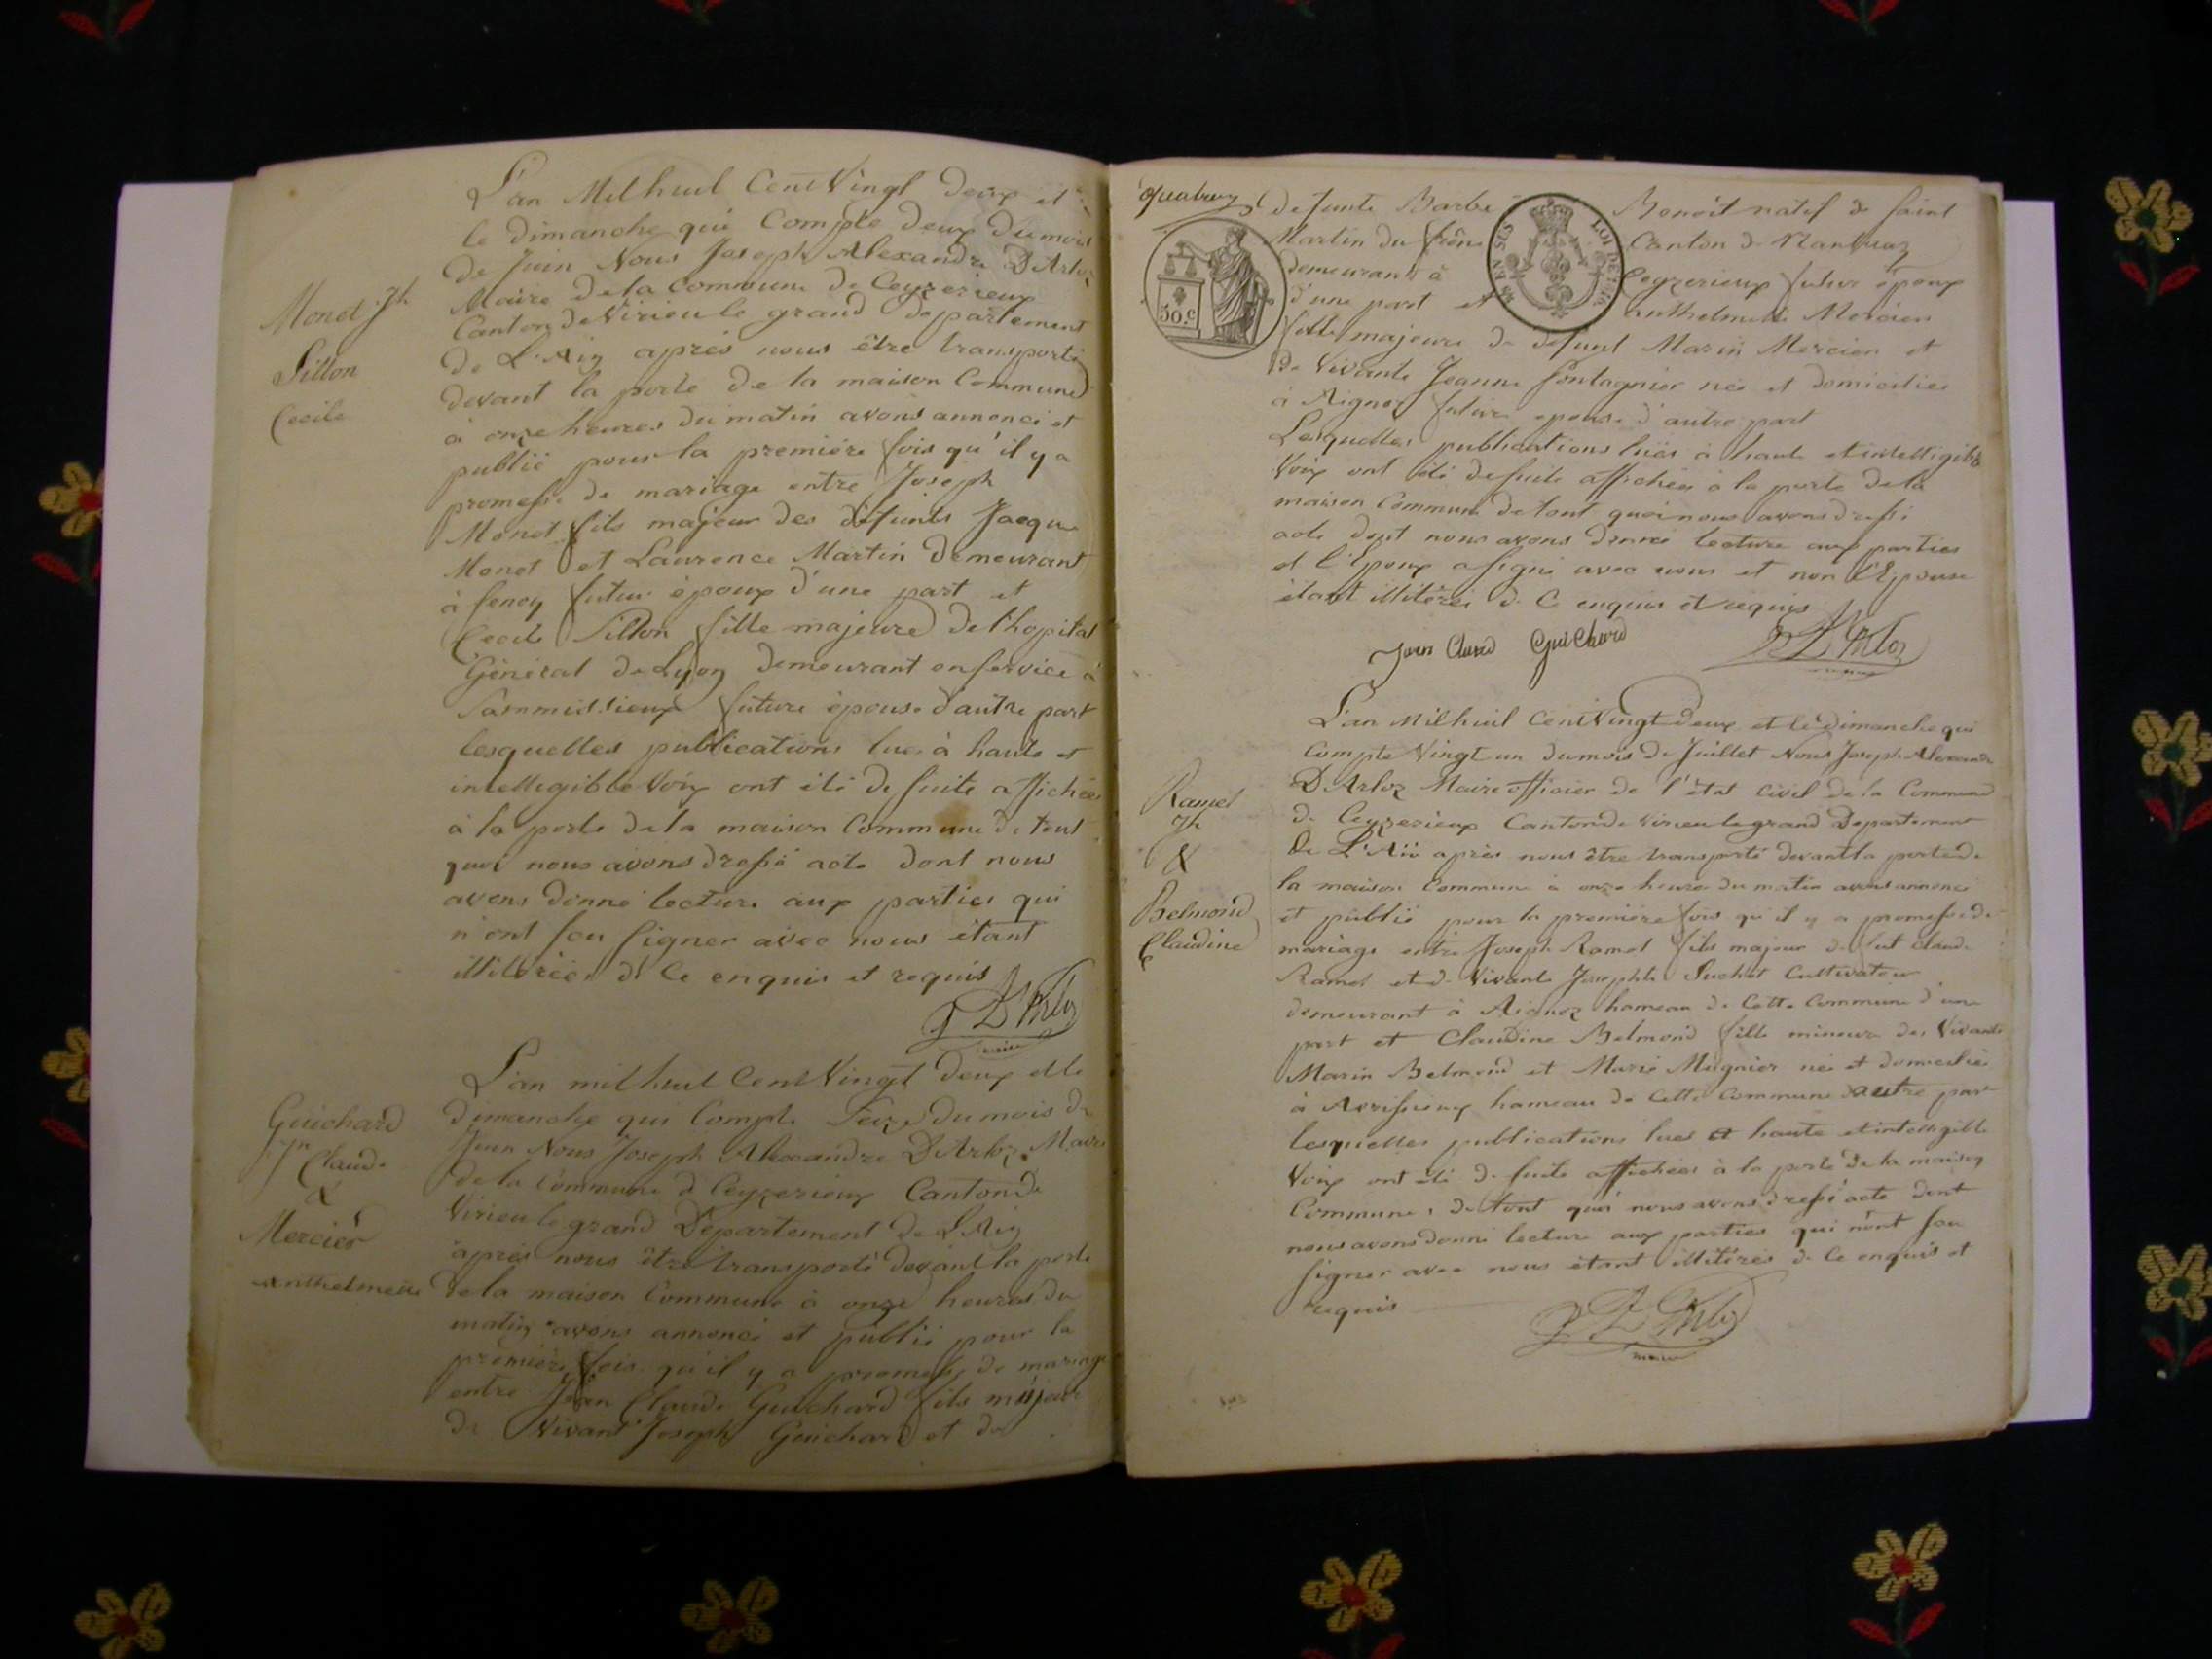 L'an Milhuit Cent Vingt deux et
le dimanche qui Compte deux du mois
de Juin Nous Joseph Alexandre D'Arloz
Maire de la Commune de Ceyzerieux
Canton de Virieu le grand département
de L'Ain après nous être transporté
devant la porte de la maison Commune
à onze heures du matin avons annoncé et
publié pour la première fois qu'il y a
promesse de mariage entre Joseph
Monet fils majeur des défunts Jacque
Monet et Laurence Martin demeurant
à futur époux d'une part et
Cecile Sillon fille majeure de l'hopital
Général de Lyon demeurant en service à
future épouse d'autre part
lesquelles publications lues à haute et
intelligible Voix ont été de suite affichées
à la porte de la maison Commune de tout
quoi nous avons dressé acte dont nous
avons donné lecture aux parties qui
n'ont seu signer avec nous étant
illitérées de Ce enquis et requis
J D'Arloz
maire
Monet Jh
Sillon
Cecile
L'an milhuit Cent Vingt deux et le
dimanche qui Compte Seize du mois de
Juin Nous Joseph Alexandre D'Arloz Maire
de la Commune de Ceyzerieux Canton de
Virieu le grand Département de L'Ain
après nous être transporté devant la porte
de la maison Commune à onze heures du
matin avons annoncé et publié pour la
première fois qu'il y a promesse de mariage
entre Jean Claude Guichard fils majeur
de Vivant Joseph Guichard et de
Guichard
Jn Claude
&
Mercier
Anthelmette
defunte Barbe Benoit natif de Saint
Martin du frêne Canton de Nantuaz
demeurant à Ceyzerieux futur époux
d'une part et Anthelmette Mercier
fille majeure de défunt Marin Mercier et
de Vivante Jeanne née et domiciliée
à Aignoz future epouse d'autre part
Lesquelles publications luës à haute et intelligible
Voix ont été de suite affichées à la porte de la
maison Commune de tout quoi nous avons dressé
acte dont nous avons donné lecture aux parties
et l'Epoux a signé avec nous et non l'Epouse
étant illitérée de Ce enquis et requis
Jean Claud Guichard J D'Arloz
maire
50.C
LOI DE 1816
L'an Milhuit Cent Vingt Deux et le dimanche qui
Compte Vingt un du mois de Juillet Nous Joseph Alexandre
D'Arloz Maire officier de l'état Civil de la Commune
de Ceyzerieux Canton de Virieu le grand Département
De L'Ain après nous être transporté devant la porte de
la maison Commune à onze heures du matin avons annoncé
et publié pour la première fois qu'il y a promesse de
mariage entre Joseph Ramel fils majeur de fut Claude
Ramel et de Vivante Josephte Suchet Cultivateur
demeurant à Aignoz hameau de Cette Commune d'une
part et Claudine Belmond fille mineure des Vivants
Marin Belmond et Marie Mugnier née et domiciliée
à Avrissieux hameau de Cette Commune d'autre part
lesquelles publications lues à haute et intelligible
Voix ont été de suite affichées à la porte de la maison
Commune, de tout quoi nous avons dressé acte dont
nous avons donné lecture aux parties qui n'ont seu
signer avec nous étant illitérés de Ce enquis et
requis
J D'Arloz
maire
Ramel
Jh
&
Belmond
Claudine